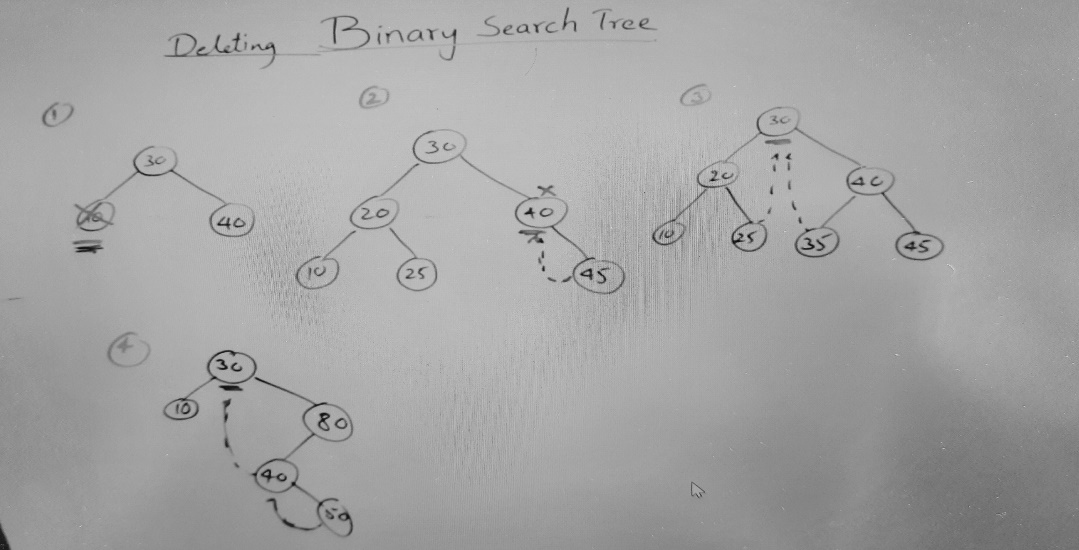 Deleting Binary Search Tree
1 2 3
30 30 30
40 20 40 20 40
10 25 45 10 25 35 45
4
30
10 80
40
50